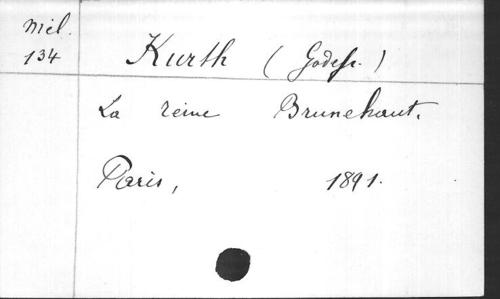 Mél.
134
Kurth (Godefr.)
La reine Brunehaut.
Paris, 1891.